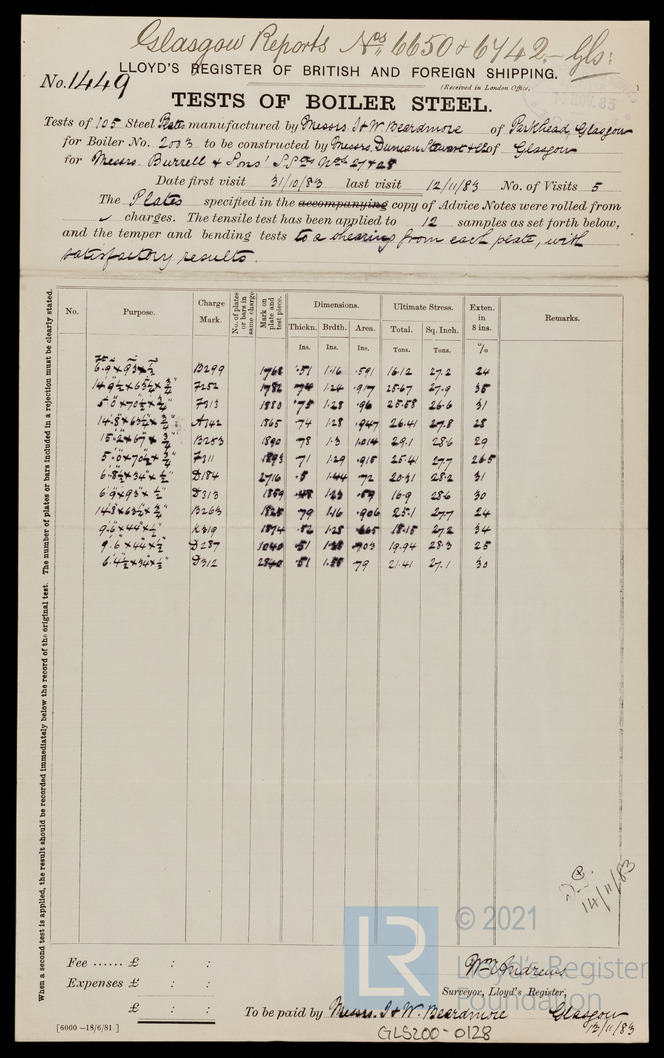 Glasgow Reports Nos 6650 & 6742 - Gls:
No. 1449
LLOYD'S REGISTER OF BRITISH AND FOREIGN SHIPPING.
(Received in London Office,
NOV. 83
TESTS OF BOILER STEEL.
Tests of 105 Steel Plates manufactured by Messrs. J & W. Beardmore of Parkhead, Glasgow
for Boiler No. 2003 to be constructed by Messrs. Duncan Stewart & Co of Glasgow
for Messrs. Burrell & Sons' S.S. Nos 27 & 28
Date first visit 31/10/83 last visit 12/11/83 No. of Visits 5
The Plates specified in the accompanying copy of Advice Notes were rolled from
charges. The tensile test has been applied to 12 samples as set forth below,
and the temper and bending tests to a shearing from each plate, with
satisfactory results.
When a second test is applied, the result should be recorded immediately below the record of the original test. The number of plates or bars included in a rejection must be clearly stated.
No. Purpose. Charge Mark. No. of plates or bars in same charge Mark on plate and test piece. Dimensions. Ultimate Stress. Exten. in 8 ins. Remarks.
Thickn. Brdth. Area. Total. Sq. Inch.
Ins. Ins. Ins. Tons. Tons. %
6.9 × 93 × ½ B299 1768 .51 1.16 .591 16.12 27.2 24
14.9½ × 63½ × ¾" 7252 1782 .74 1.24 .917 25.67 27.9 35
5.0 × 70½ × ¾" 7313 1880 .75 1.28 .96 25.58 26.6 31
14.8 × 63½ × ¾" A342 1865 .74 1.28 .947 26.41 27.8 28
15.2 × 67 × ¾" B253 1890 .78 1.3 1.014 29.1 28.6 29
5.0 × 70½ × ¾" 7311 1893 .71 1.29 .915 25.41 27.7 26.5
6.8½ × 34 × ½" D184 2716 .5 1.44 .72 20.31 28.2 31
6.9 × 93 × ½" D313 1859 .48 1.23 .59 16.9 28.6 30
14.8 × 63½ × ¾" B263 1825 .79 1.16 .906 25.1 27.7 24
9.6 × 44 × ½" K319 1874 .52 1.28 .665 18.15 27.2 34
9.6 × 44 × ½" D287 1040 .51 1.38 .703 19.94 28.3 25
6.4½ × 34 × ½" D312 2840 .51 1.55 .79 21.41 27.1 30
14/11/83
© 2021
LR
Lloyd's Register
Foundation
Fee ...... £ : :
Expenses £ : :
£ : :
Wm Andrews
Surveyor, Lloyd's Register,
To be paid by Messrs. J & W. Beardmore Glasgow
12/11/83
[6000 -18/6/81.]
GLS200-0128